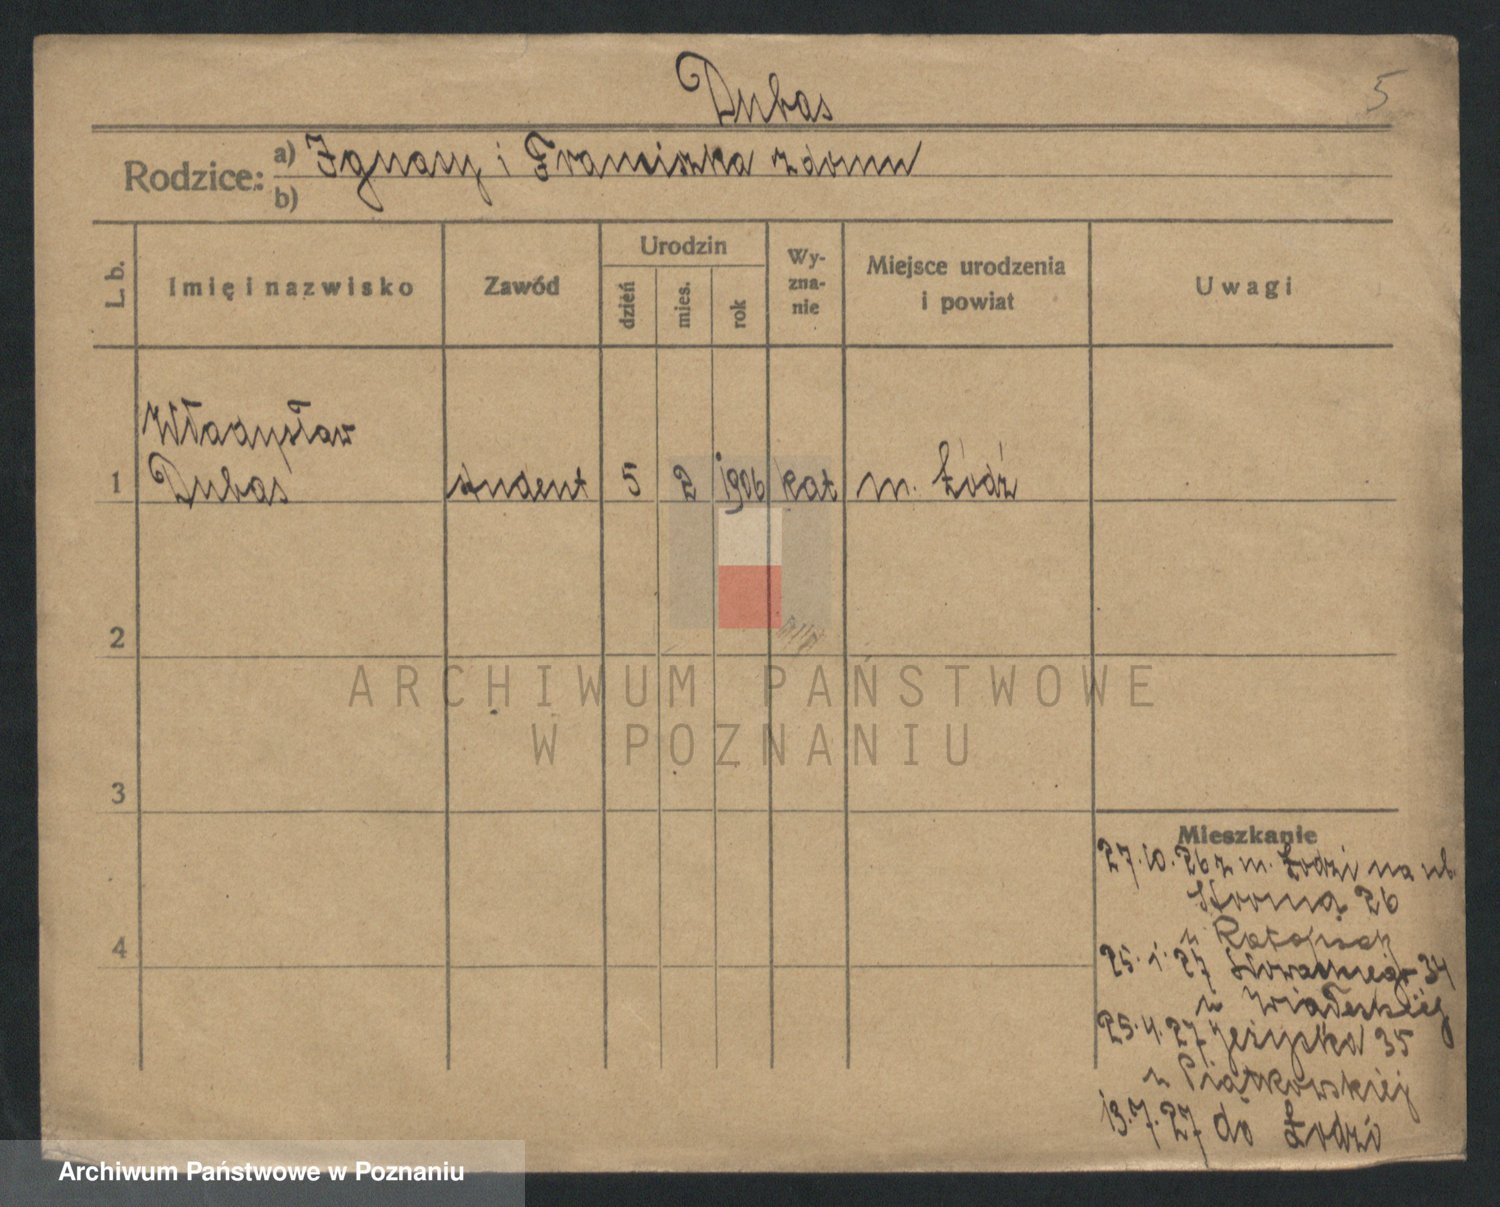 Dubas
5
Rodzice: a) Ignacy i Franciszka z domu
b)
L. b.
Imię i nazwisko
Zawód
Urodzin
dzień
mies.
rok
Wy-
zna-
nie
Miejsce urodzenia
i powiat
Uwagi
Władysław
1 Dubas student 5 2 1906 kat m. Łódź
2
ARCHIWUM PAŃSTWOWE
W POZNANIU
3
Mieszkanie
27.10.26 z m. Łodzi na ul.
Stromą 26
4
u
25.1.27 34
u
25.4.27 Jeżycka 35
u Piątkowskiej
13.7.27 do Łodzi
Archiwum Państwowe w Poznaniu